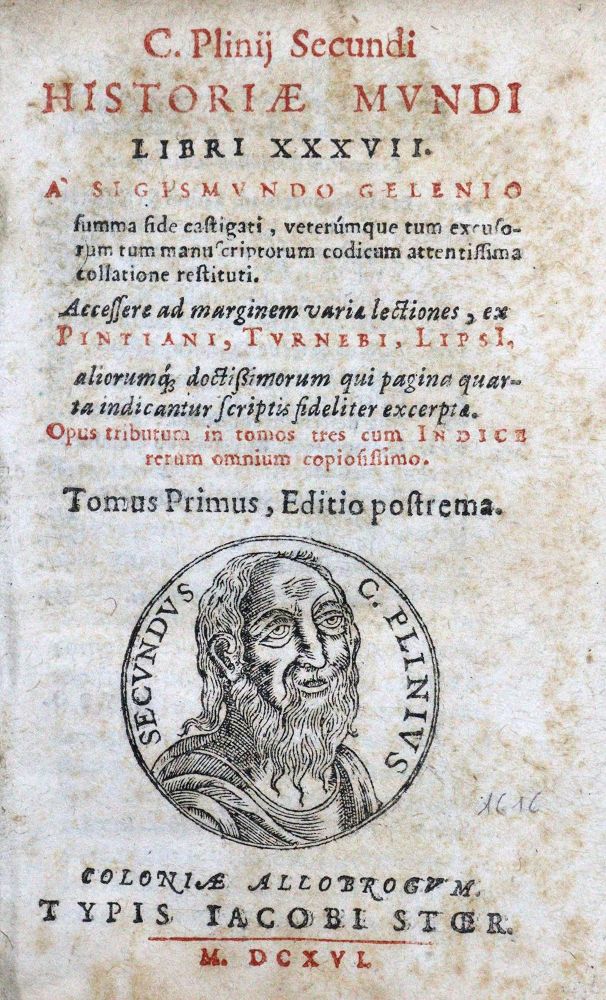 C. Plinij Secundi
HISTORIÆ MVNDI
LIBRI XXXVII.
A` SIGISMVNDO GELENIO
ſumma fide caſtigati, veterúmque tum excuſo-
rum tum manuſcriptorum codicum attentiſſima
collatione reſtituti.
Acceſſere ad marginem variæ lectiones, ex
PINTIANI, TVRNEBI, LIPSI,
aliorumq́; doctißimorum qui pagina quar-
ta indicantur ſcriptis fideliter excerptæ.
Opus tributum in tomos tres cum INDICE
rerum omnium copioſiſſimo.
Tomus Primus, Editio poſtrema.
SECVNDVS C. PLINIVS
1616
COLONIÆ ALLOBROGVM.
TYPIS IACOBI STŒR.
M. DCXVI.